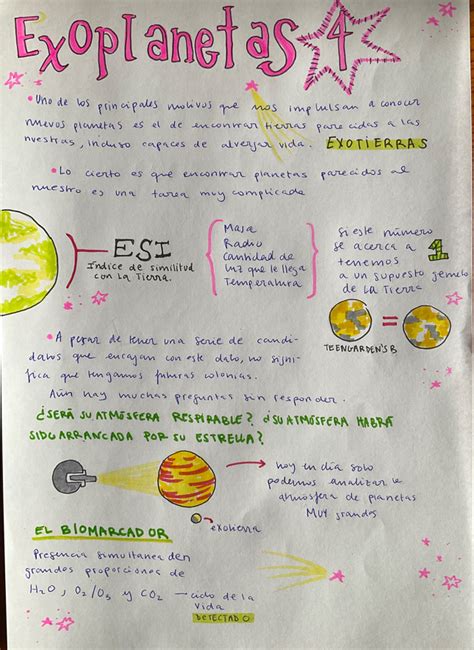 Exoplanetas 4
• Uno de los principales motivos que nos impulsan a conocer
nuevos planetas es el de encontrar tierras parecidas a las
nuestras, incluso capaces de albergar vida. EXOTIERRAS
• Lo cierto es que encontrar planetas parecidos al
nuestro es una tarea muy complicada
ESI
Índice de similitud
con La Tierra.
Masa
Radio
Cantidad de
luz que le llega
Temperatura
Si este número
se acerca a 1
tenemos
a un supuesto gemelo
de La Tierra
=
TEENGARDEN'S B
• A pesar de tener una serie de candi-
datos que encajan con este dato, no signi-
fica que tengamos futuras colonias.
Aún hay muchas preguntas sin responder.
¿SERÁ SU ATMÓSFERA RESPIRABLE? ¿SU ATMÓSFERA HABRÁ
SIDO ARRANCADA POR SU ESTRELLA?
hoy en día solo
podemos analizar la
atmósfera de planetas
MUY grandes
exotierra
EL BIOMARCADOR
Presencia simultanea den
grandes proporciones de
H2O, O2/O3 y CO2 — ciclo de la
vida
DETECTADO